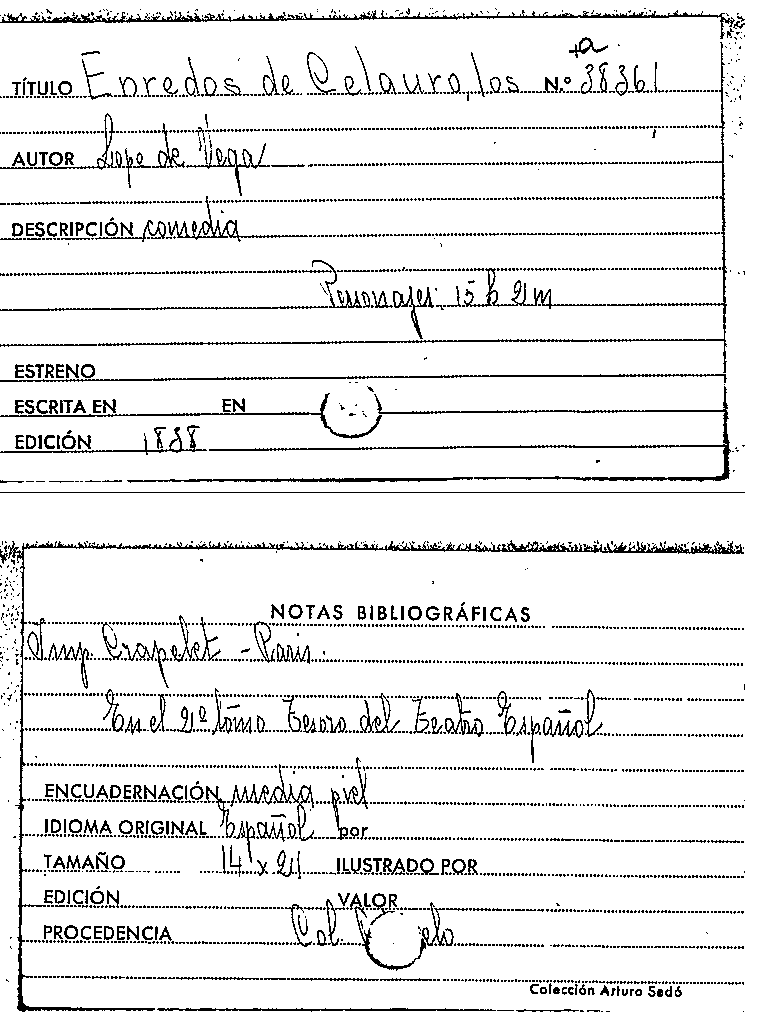 +a
TÍTULO Enredos de Celauro, los N.º 38361
AUTOR Lope de Vega
DESCRIPCIÓN comedia
Personajes: 15 h 2 m
ESTRENO
ESCRITA EN EN
EDICIÓN 1838
NOTAS BIBLIOGRÁFICAS
Imp. Crapelet - Paris.
En el 2º tomo Tesoro del Teatro Español
ENCUADERNACIÓN media piel
IDIOMA ORIGINAL Español por
TAMAÑO 14 x 21 ILUSTRADO POR
EDICIÓN VALOR
PROCEDENCIA Col.
Colección Arturo Sedó